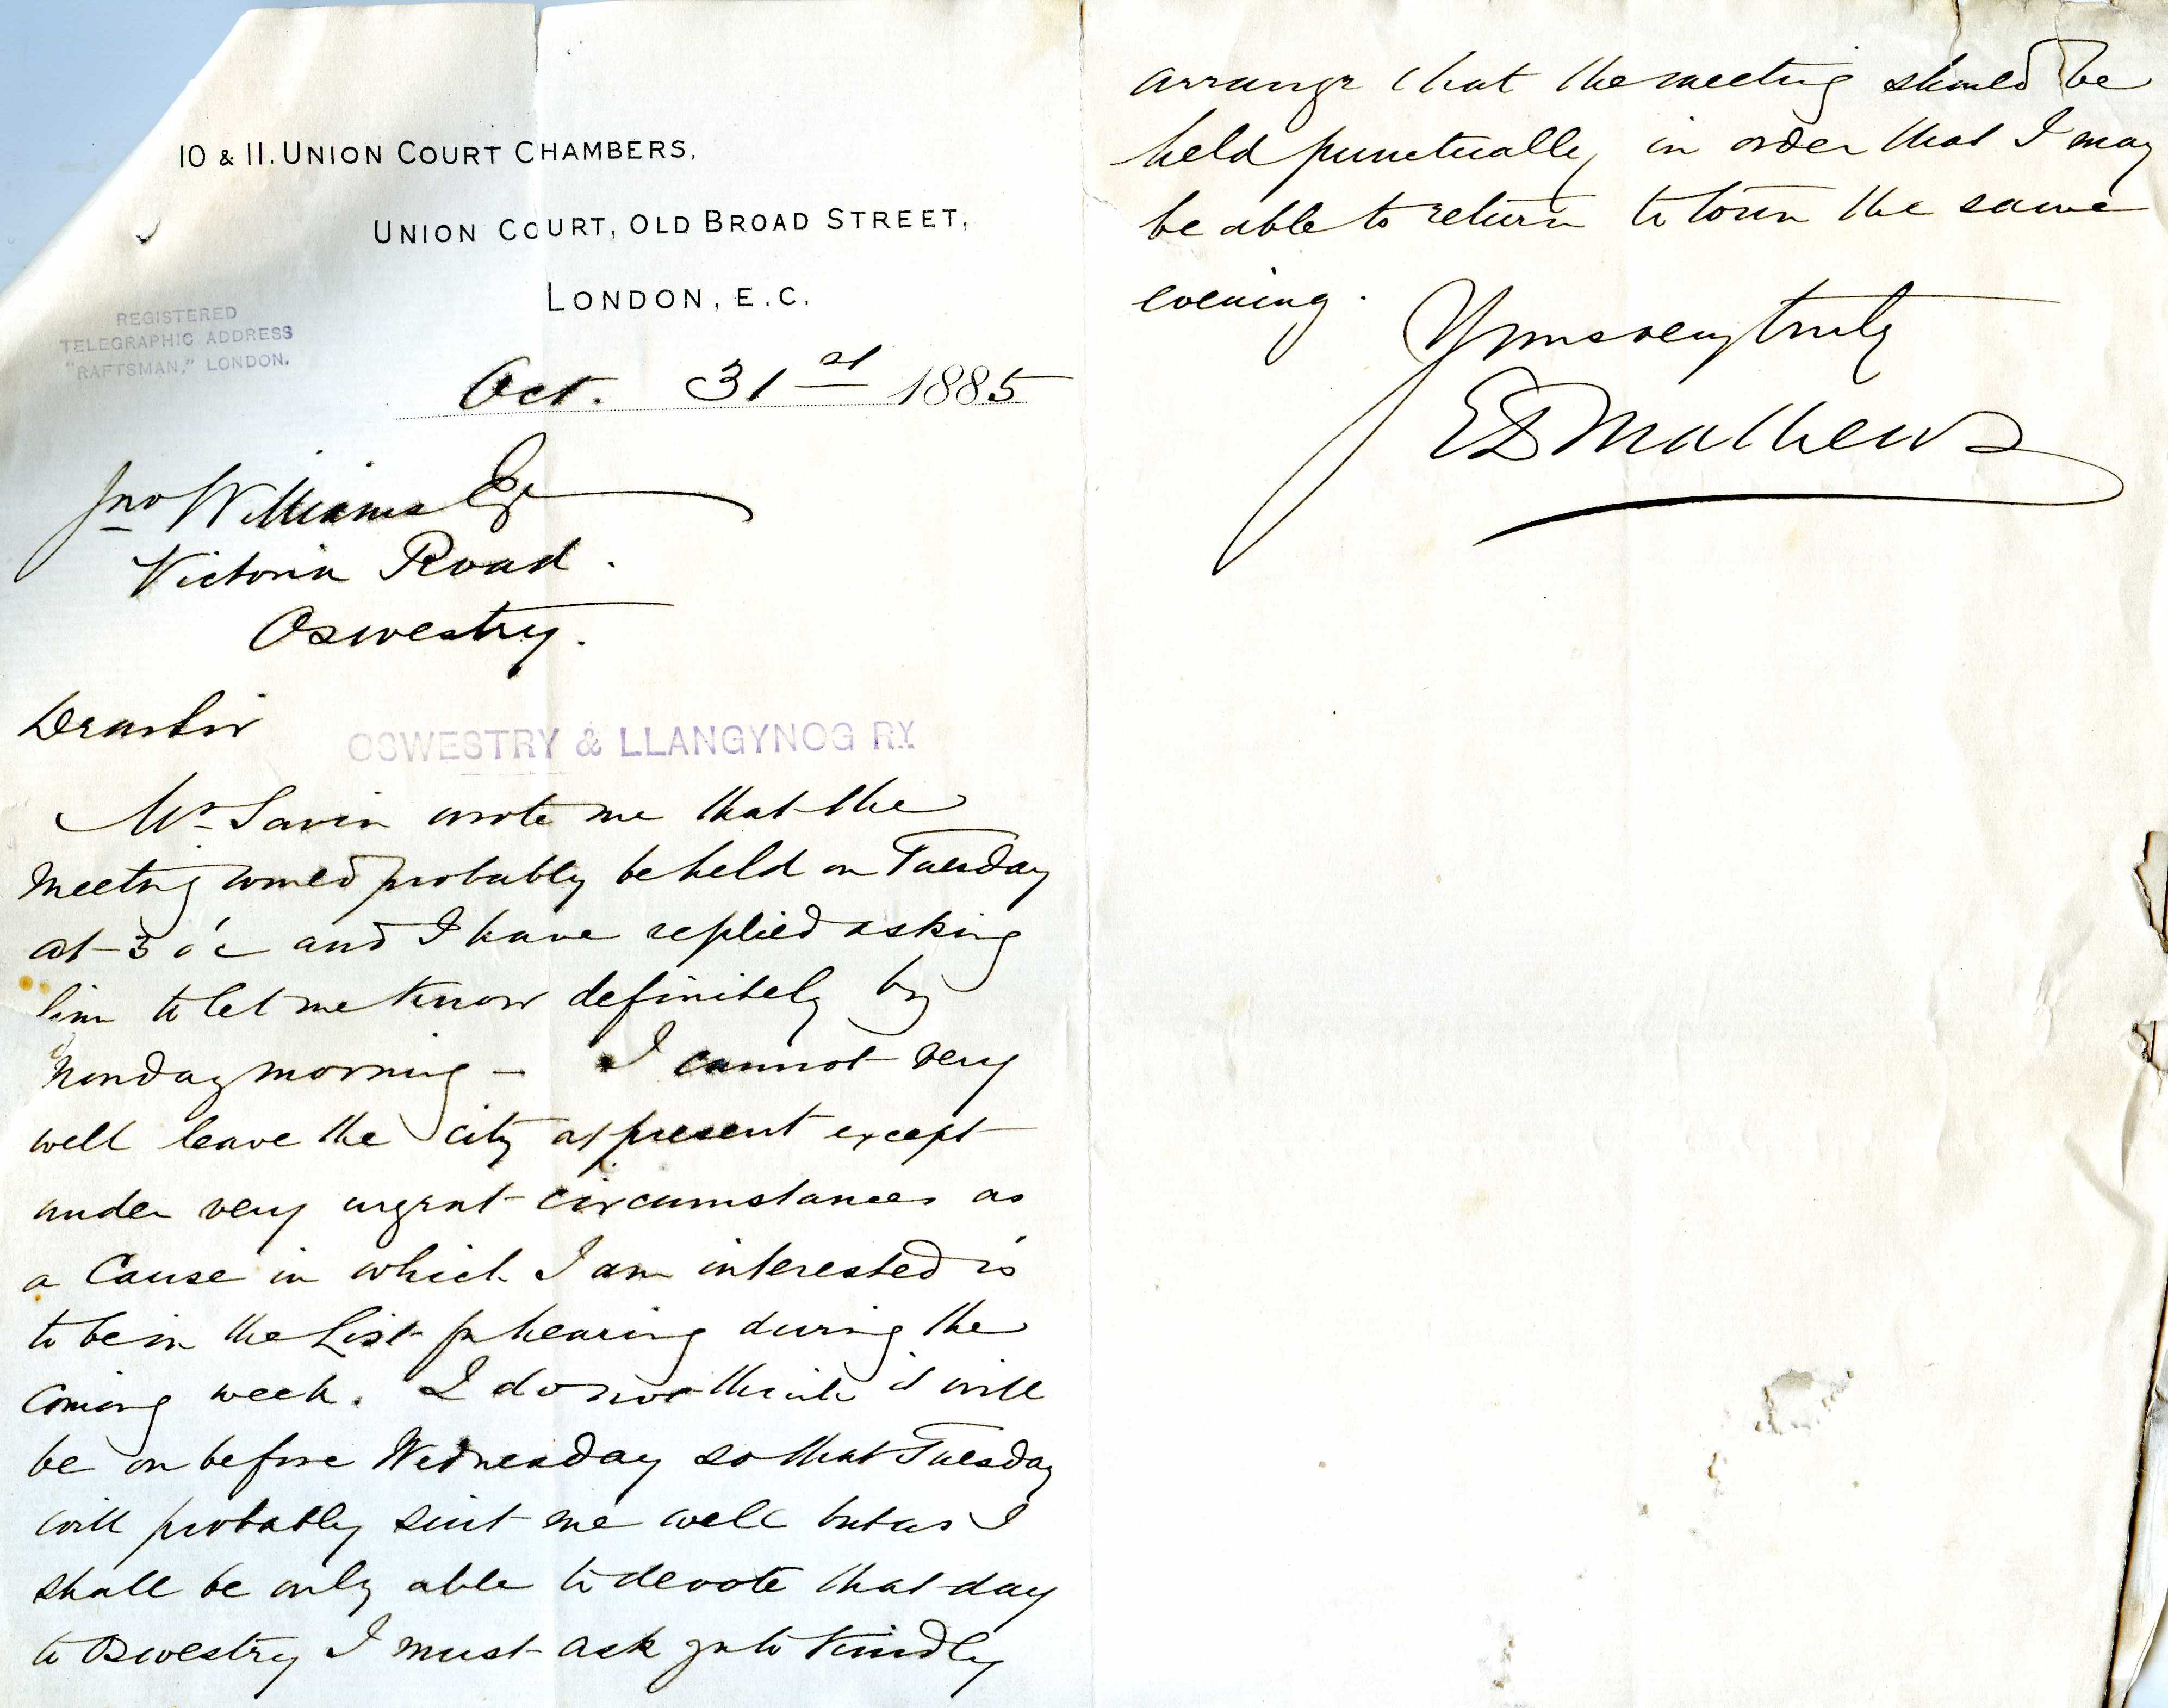 10 & 11. UNION COURT CHAMBERS,
UNION COURT, OLD BROAD STREET,
LONDON, E.C.
REGISTERED
TELEGRAPHIC ADDRESS
"RAFTSMAN," LONDON.
Oct. 31st 1885
Jno Williams Esq
Victoria Road.
Oswestry.
Dear Sir
OSWESTRY & LLANGYNOG RY.
Mr Savin wrote me that the
meeting would probably be held on Tuesday
at 3 o'c and I have replied asking
him to let me know definitely by
Monday morning - I cannot very
well leave the city at present except
under very urgent circumstances as
a Cause in which I am interested is
to be in the List for hearing during the
coming week. I do not think it will
be on before Wednesday so that Tuesday
will probably suit me well but as I
shall be only able to devote that day
to Oswestry I must ask you to kindly
arrange that the meeting should be
held punctually in order that I may
be able to return to town the same
evening.
Yours very truly
E D Mathews